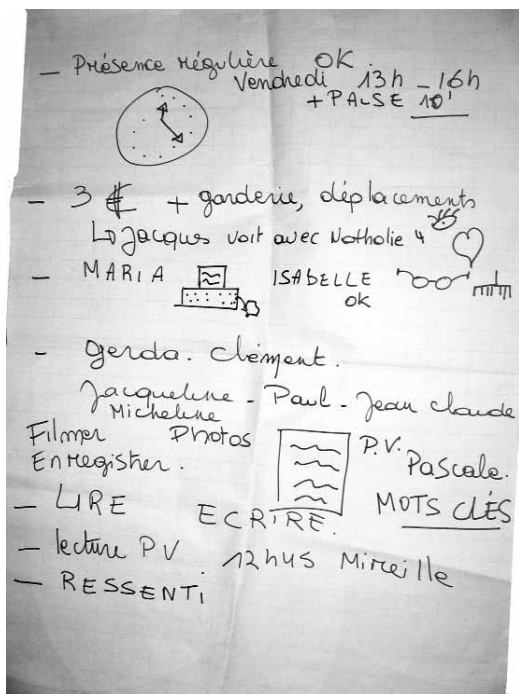 — Présence régulière OK.
Vendredi 13h - 16h
+ PAUSE 10'
- 3 € + garderie, déplacements
↳ Jacques voit avec Nathalie
- MARIA ISABELLE
OK
- Gerda. Clément.
Jacqueline - Paul - Jean Claude
Micheline
Filmer Photos P.V. Pascale.
Enregistrer. MOTS CLÉS
- LIRE ECRIRE.
- lecture PV 12h45 Mireille
- RESSENTI